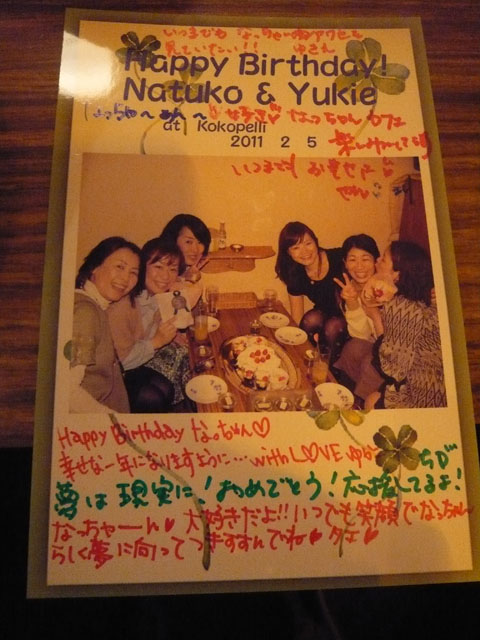 いつまでも なっちゃんの
見ていたい!! ゆきえ
Happy Birthday!
Natuko & Yukie
なっちゃん
at Kokopelli
2011 2 5
いつまでも お幸せに
Happy Birthday なっちゃん♡
幸せな一年になりますように… with LOVE ゆか
夢は現実に! おめでとう! 応援してるよ!
なっちゃーん♥ 大好きだよ!! いつでも笑顔でなっちゃん
らしく夢に向ってつきすすんでね♥ タエ♥